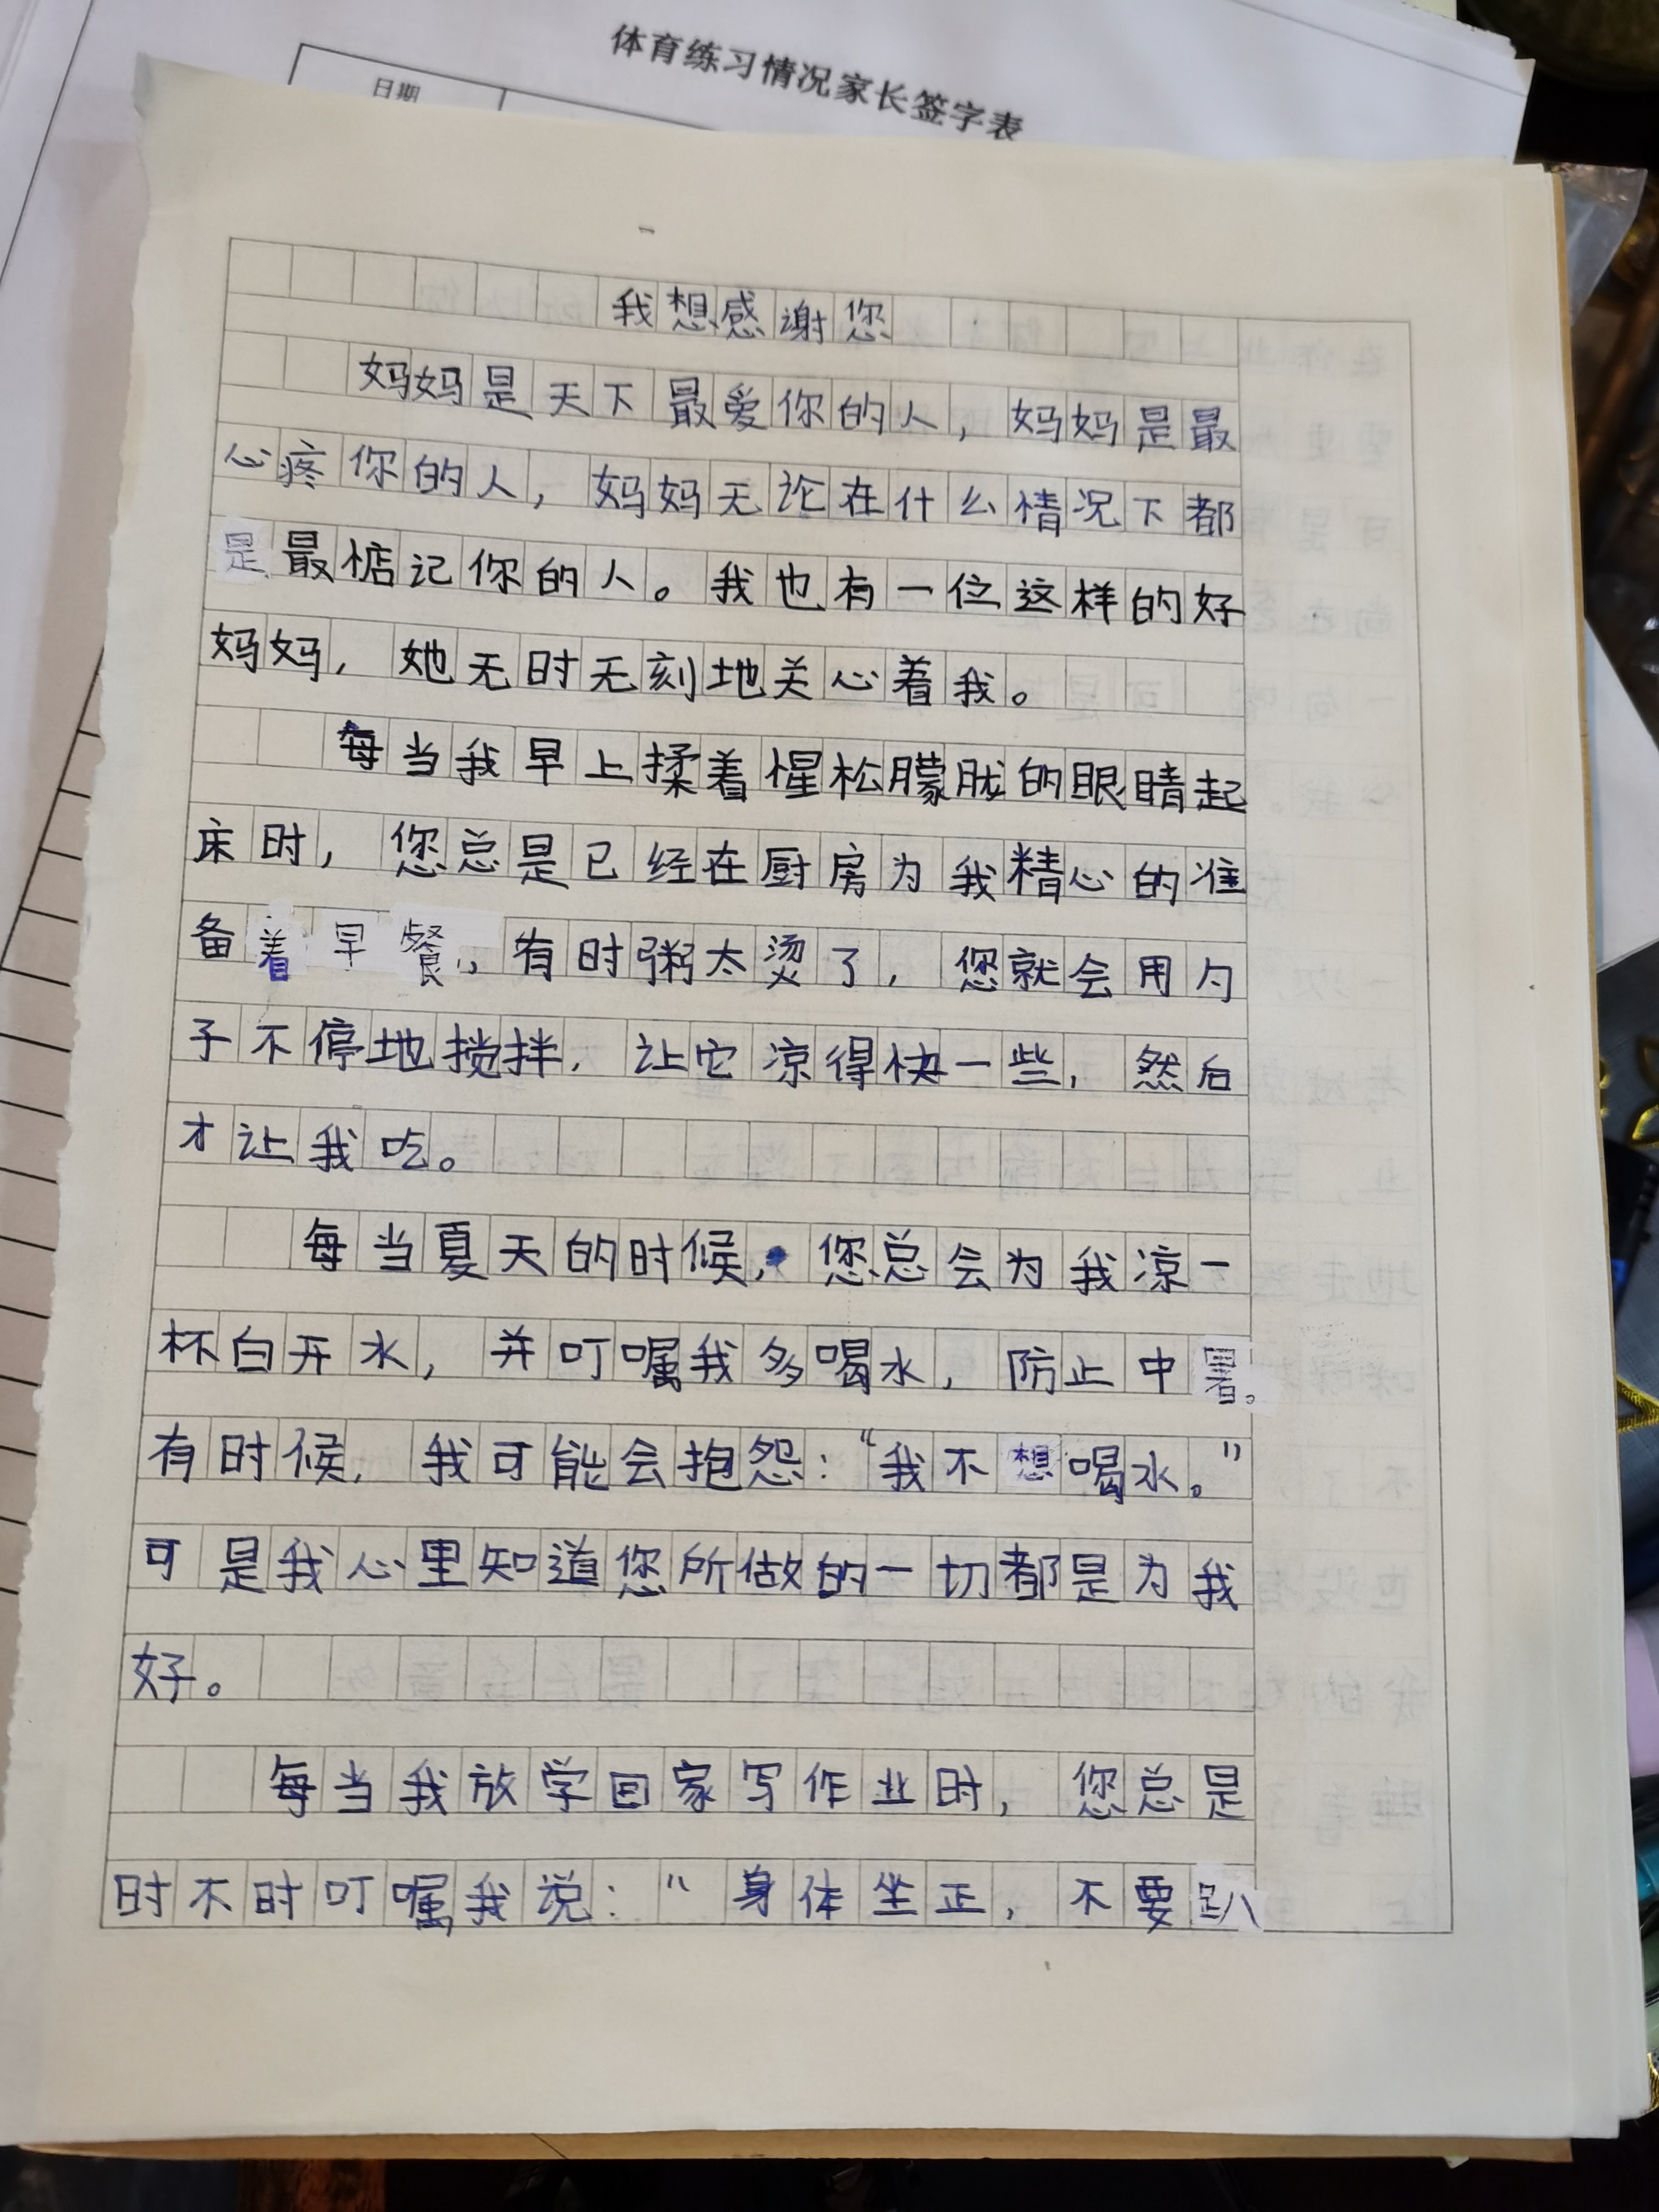 体育练习情况家长签字表
日期
我想感谢您
妈妈是天下最爱你的人，妈妈是最
心疼你的人，妈妈无论在什么情况下都
是最惦记你的人。我也有一位这样的好
妈妈，她无时无刻地关心着我。
每当我早上揉着惺松朦胧的眼睛起
床时，您总是已经在厨房为我精心的准
备着早餐，有时粥太烫了，您就会用勺
子不停地搅拌，让它凉得快一些，然后
才让我吃。
每当夏天的时候，您总会为我凉一
杯白开水，并叮嘱我多喝水，防止中暑。
有时候，我可能会抱怨：“我不想喝水。”
可是我心里知道您所做的一切都是为我
好。
每当我放学回家写作业时，您总是
时不时叮嘱我说：“身体坐正，不要趴